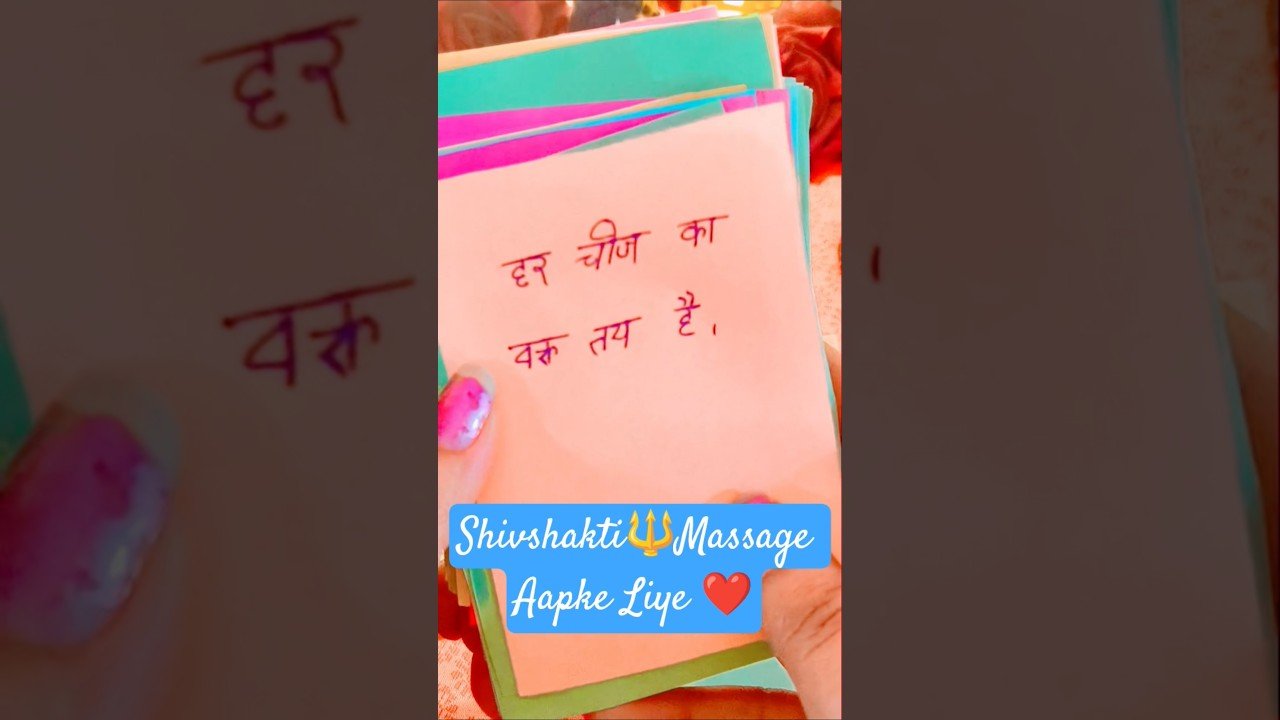 हर चीज का
वक्त तय है.
Shivshakti🔱Massage
Aapke Liye ❤️